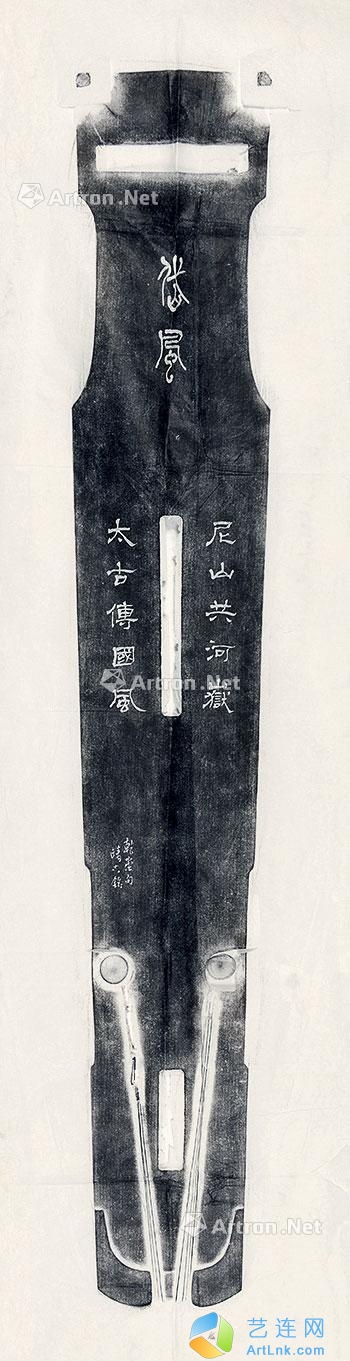 風
尼山共河嶽
太古傳國風
Artron.Net
Artron.Net
Artron.Net
艺连网
ArtLnk.com